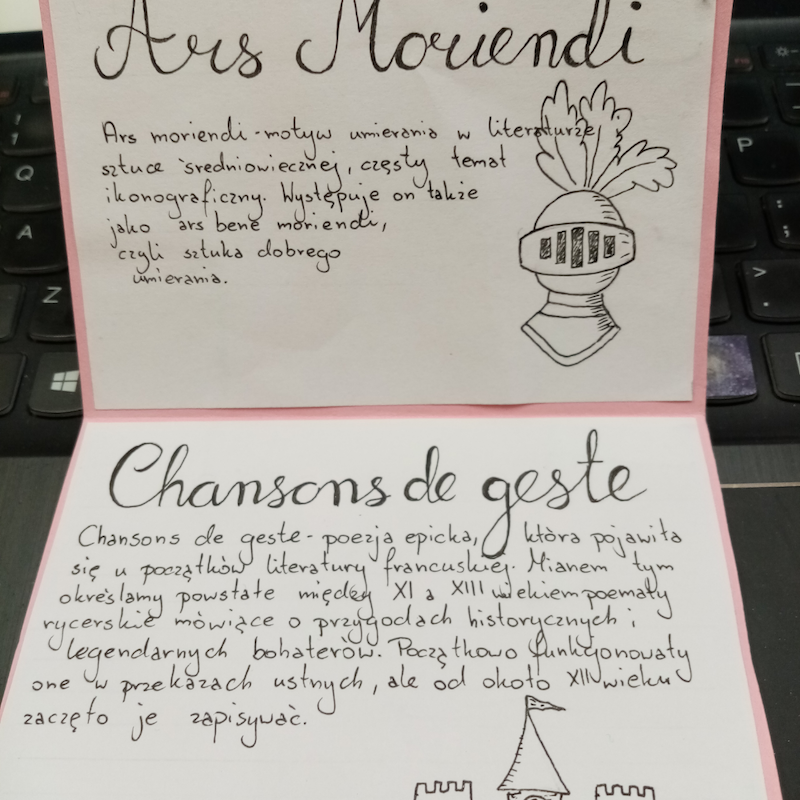 Ars Moriendi
Ars moriendi - motyw umierania w literaturze,
sztuce średniowiecznej, częsty temat
ikonograficzny. Występuje on także
jako ars bene moriendi,
czyli sztuka dobrego
umierania.
Q
A
Z
P
>
Chansons de geste
Chansons de geste - poezja epicka, która pojawiła
się u początków literatury francuskiej. Mianem tym
określamy powstałe między XI a XIII wiekiem poematy
rycerskie mówiące o przygodach historycznych i
legendarnych bohaterów. Początkowo funkcjonowały
one w przekazach ustnych, ale od około XII wieku
zaczęto je zapisywać.